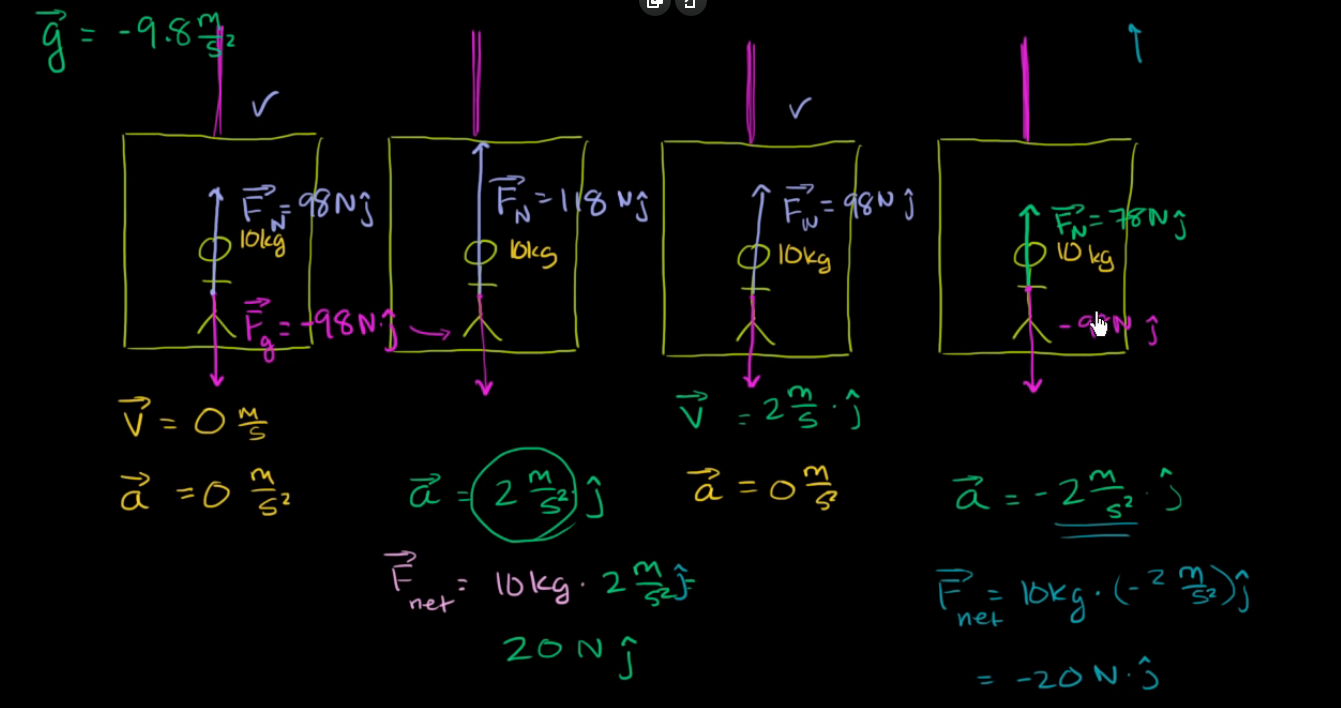 g⃗ = -9.8 m/s²
✓
✓
F⃗_N = 98 N ĵ
10kg
F⃗_g = -98 N ĵ
v⃗ = 0 m/s
a⃗ = 0 m/s²
F⃗_N = 118 N ĵ
10kg
a⃗ = 2 m/s² ĵ
F⃗_net = 10kg · 2 m/s² ĵ
20 N ĵ
F⃗_N = 98 N ĵ
10kg
v⃗ = 2 m/s · ĵ
a⃗ = 0 m/s²
F⃗_N = 78 N ĵ
10 kg
-98N ĵ
a⃗ = -2 m/s² · ĵ
F⃗_net = 10kg · (-2 m/s²) ĵ
= -20 N · ĵ